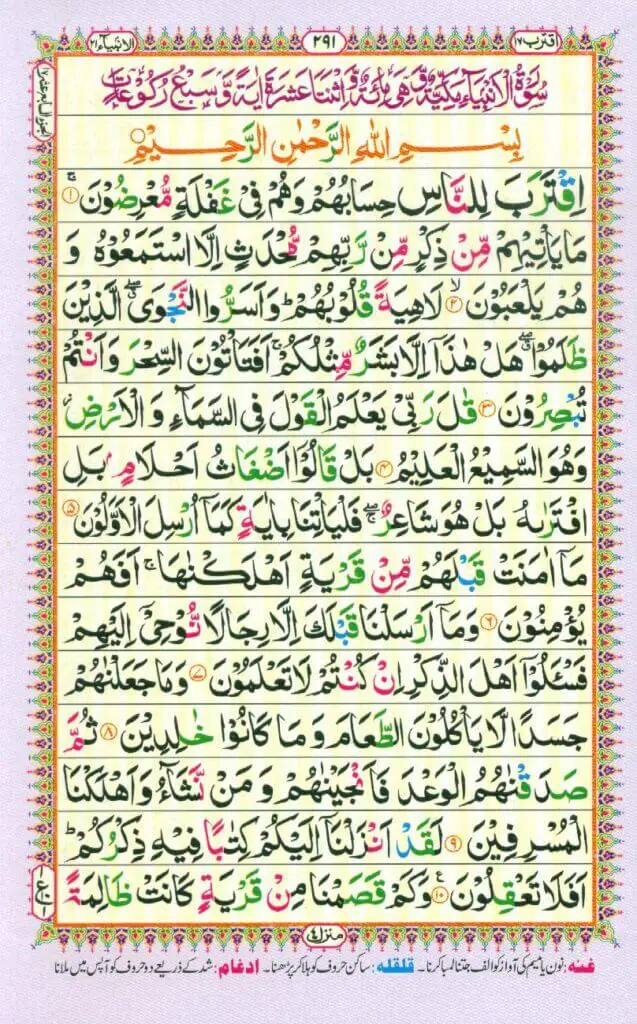 اقترب ١٧
٢٩١
الانبیآء ٢١
سُوْرَةُ الْاَنْبِيَآءِ مَكِّيَّةٌ وَّهِیَ مِائَةٌ وَّاثْنَتَا عَشَرَةَ اٰيَةً وَّسَبْعُ رُكُوْعَاتٍ
بِسْمِ اللّٰهِ الرَّحْمٰنِ الرَّحِيْمِ
اِقْتَرَبَ لِلنَّاسِ حِسَابُهُمْ وَهُمْ فِیْ غَفْلَةٍ مُّعْرِضُوْنَ ۚ ١
مَا يَاْتِيْهِمْ مِّنْ ذِكْرٍ مِّنْ رَّبِّهِمْ مُّحْدَثٍ اِلَّا اسْتَمَعُوْهُ وَ
هُمْ يَلْعَبُوْنَ ۙ ٢ لَاهِيَةً قُلُوْبُهُمْ ؕ وَاَسَرُّوا النَّجْوَی ۖ الَّذِيْنَ
ظَلَمُوْا ۖ هَلْ هٰذَاۤ اِلَّا بَشَرٌ مِّثْلُكُمْ ۚ اَفَتَاْتُوْنَ السِّحْرَ وَاَنْتُمْ
تُبْصِرُوْنَ ٣ قٰلَ رَبِّیْ يَعْلَمُ الْقَوْلَ فِی السَّمَآءِ وَالْاَرْضِ ؗ
وَهُوَ السَّمِيْعُ الْعَلِيْمُ ٤ بَلْ قَالُوْۤا اَضْغَاثُ اَحْلَامٍۭ بَلِ
افْتَرٰىهُ بَلْ هُوَ شَاعِرٌ ۖۚ فَلْيَاْتِنَا بِاٰيَةٍ كَمَاۤ اُرْسِلَ الْاَوَّلُوْنَ ٥
مَاۤ اٰمَنَتْ قَبْلَهُمْ مِّنْ قَرْيَةٍ اَهْلَكْنٰهَا ۚ اَفَهُمْ
يُؤْمِنُوْنَ ٦ وَمَاۤ اَرْسَلْنَا قَبْلَكَ اِلَّا رِجَالًا نُّوْحِیْۤ اِلَيْهِمْ
فَسْـَٔلُوْۤا اَهْلَ الذِّكْرِ اِنْ كُنْتُمْ لَا تَعْلَمُوْنَ ٧ وَمَا جَعَلْنٰهُمْ
جَسَدًا لَّا يَاْكُلُوْنَ الطَّعَامَ وَمَا كَانُوْا خٰلِدِيْنَ ٨ ثُمَّ
صَدَقْنٰهُمُ الْوَعْدَ فَاَنْجَيْنٰهُمْ وَمَنْ نَّشَآءُ وَاَهْلَكْنَا
الْمُسْرِفِيْنَ ٩ لَقَدْ اَنْزَلْنَاۤ اِلَيْكُمْ كِتٰبًا فِيْهِ ذِكْرُكُمْ ؕ
اَفَلَا تَعْقِلُوْنَ ١٠ ع وَكَمْ قَصَمْنَا مِنْ قَرْيَةٍ كَانَتْ ظَالِمَةً
منزل ٤
غنہ: نون یا میم کی آواز کو الف جتنا لمبا کرنا۔ قلقلہ: ساکن حروف کو ہلا کر پڑھنا۔ ادغام: شد کے ذریعے دو حروف کو آپس میں ملانا
الجزء السابع عشر ١٧